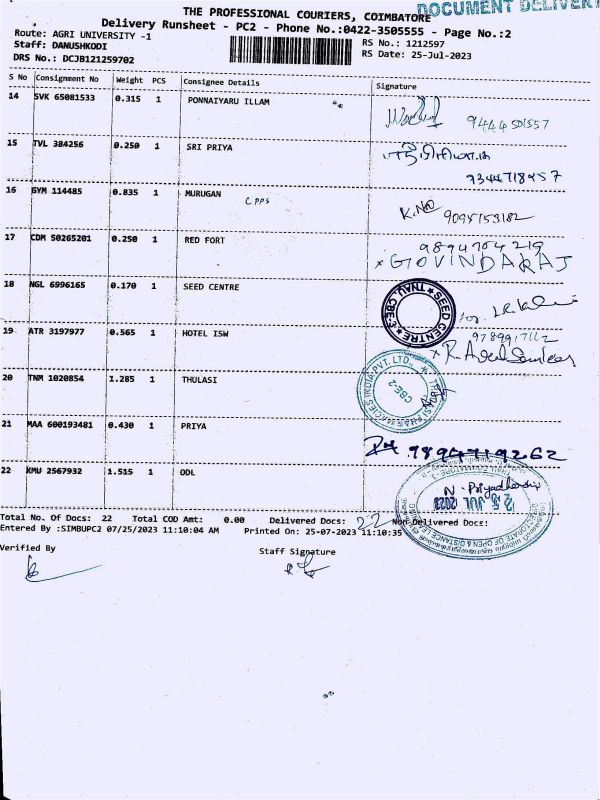 DOCUMENT DELIVERY
THE PROFESSIONAL COURIERS, COIMBATORE
Delivery Runsheet - PC2 - Phone No.:0422-3505555 - Page No.:2
Route: AGRI UNIVERSITY -1
Staff: DANUSHKODI
DRS No.: DCJB121259702
RS No.: 1212597
RS Date: 25-Jul-2023
S No Consignment No Weight PCS Consignee Details Signature
14 SVK 65081533 0.315 1 PONNAIYARU ILLAM
15 TVL 384256 0.250 1 SRI PRIYA
9344718957
16 GYM 114485 0.835 1 MURUGAN
CPPS
9095153182
17 CDM 50265201 0.250 1 RED FORT 9894704219
GOVINDARAJ
18 NGL 6996165 0.170 1 SEED CENTRE
SEED CENTRE TNAU, CBE
19 ATR 3197977 0.565 1 HOTEL ISW
20 TNM 1020854 1.285 1 THULASI
THULASI PHARMACIES INDIA PVT. LTD.,
CBE-2
21 MAA 600193481 0.430 1 PRIYA
22 KMU 2567932 1.515 1 ODL
N. Priyadharshini
25 JUL 2023
DIRECTORATE OF OPEN & DISTANCE LEARNING
Total No. Of Docs: 22 Total COD Amt: 0.00 Delivered Docs: 22 Non Delivered Docs:
Entered By :SIMBUPC2 07/25/2023 11:10:04 AM Printed On: 25-07-2023 11:10:35
Verified By Staff Signature